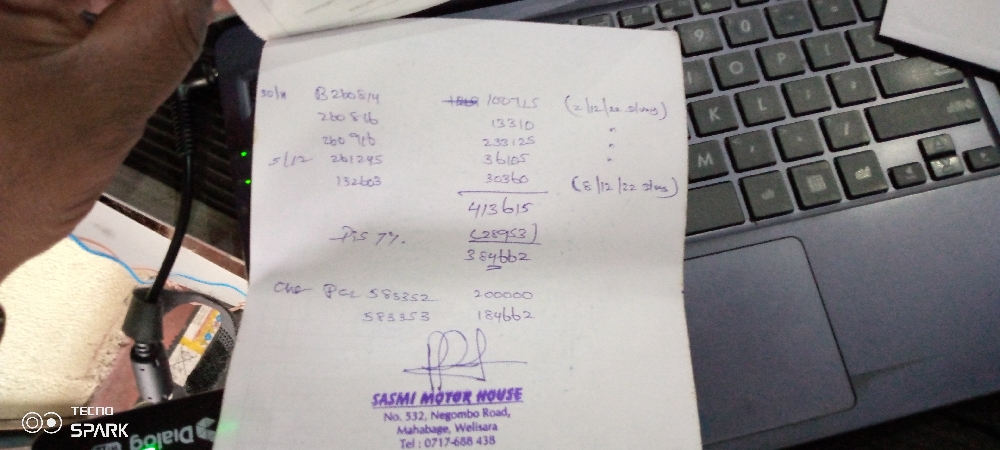 30/11 B260814 100715 (2/12/22 )
260816 13310 "
260916 233125 "
5/12 261245 36105 "
132603 30360 (8/12/22 )
413615
Dis 7%. (28953)
384662
Che 585352 200000
585353 184662
SASMI MOTOR HOUSE
No. 532, Negombo Road,
Mahabage, Welisara
Tel : 0717-688 438
TECNO
SPARK
Dialog
9 0
I O P
K L
M